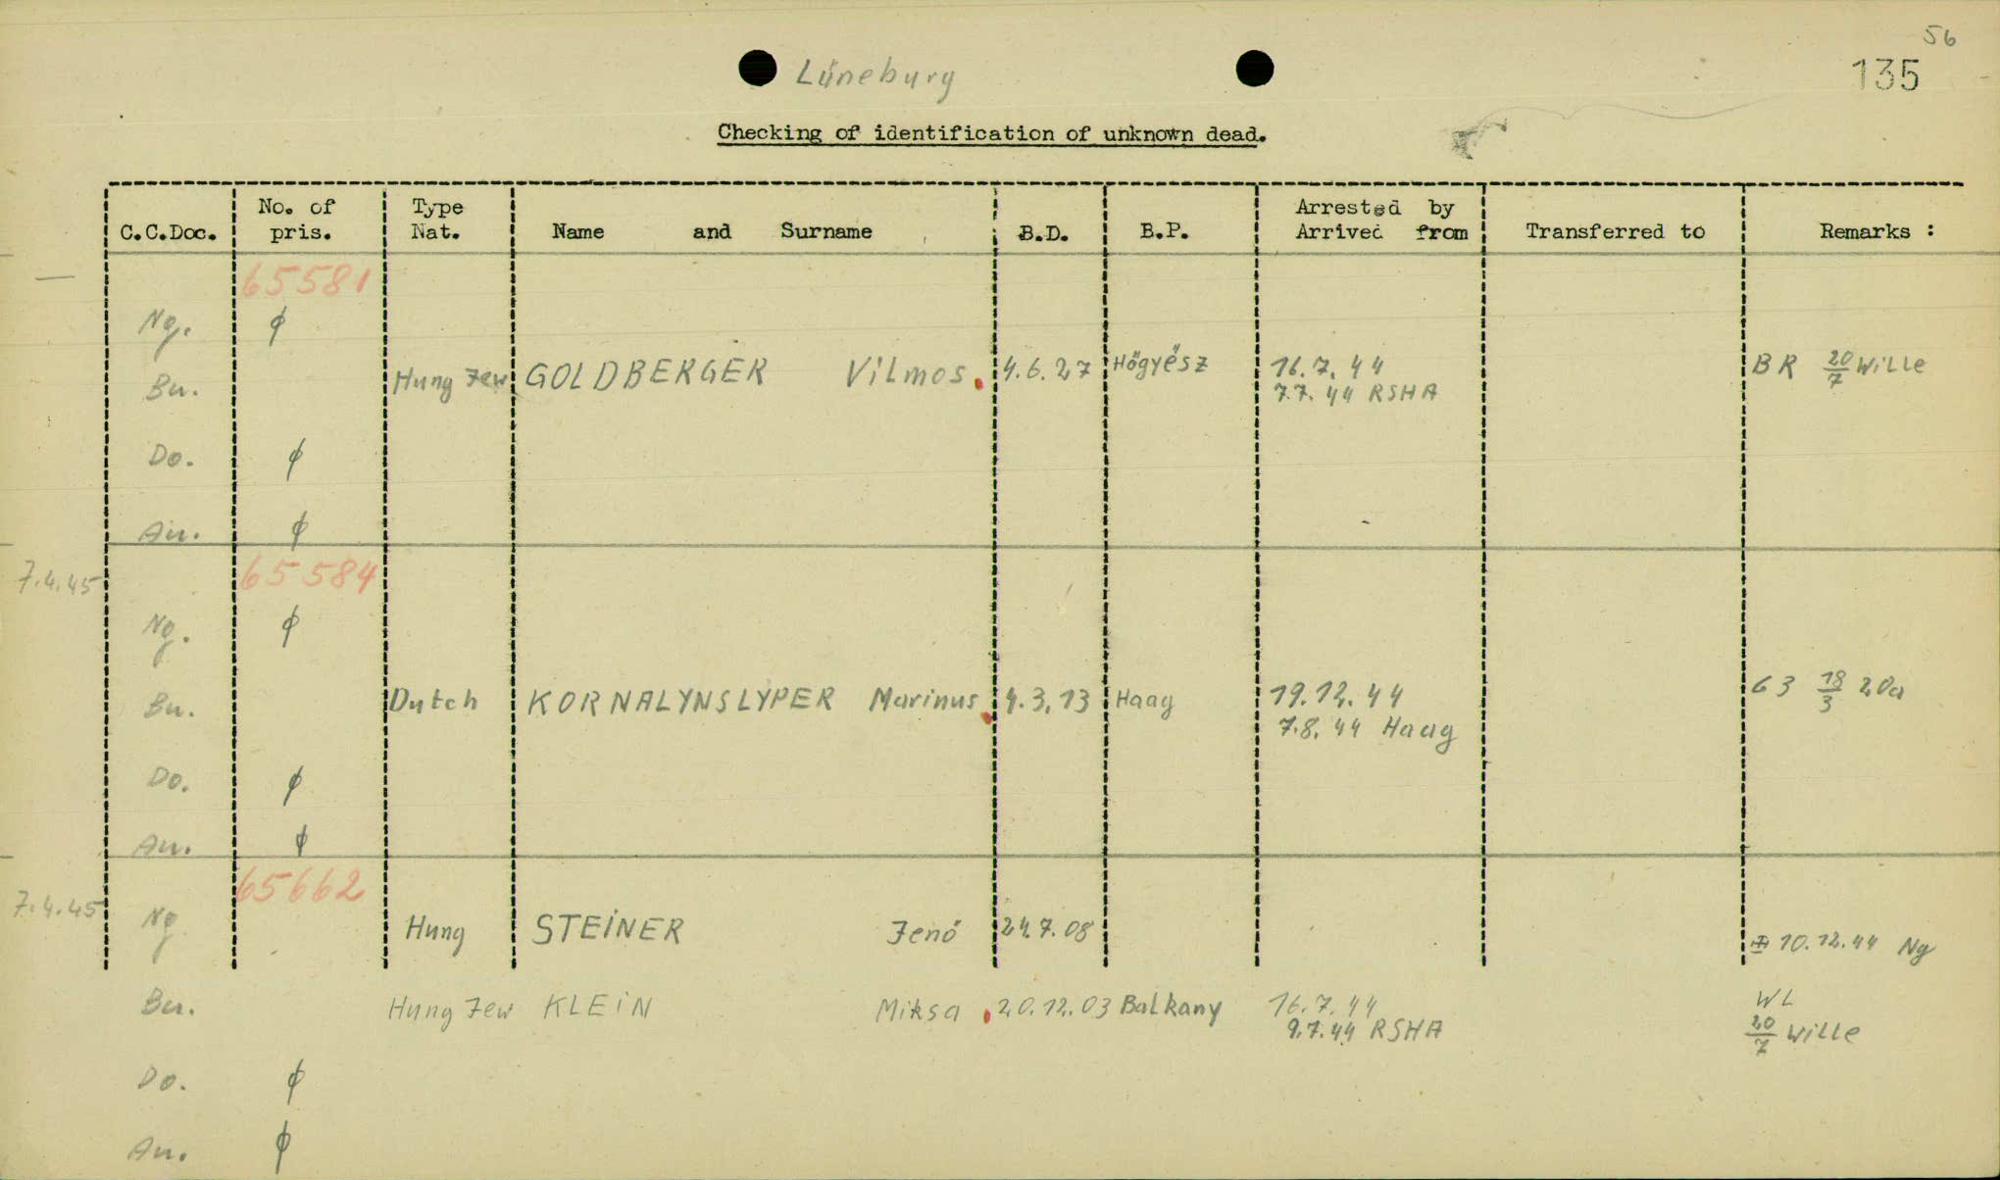 56
Lüneburg
135
Checking of identification of unknown dead.
C.C.Doc. No. of pris. Type Nat. Name and Surname B.D. B.P. Arrested by Arrived from Transferred to Remarks :
65581
Ng. ϕ
Bu. Hung Jew GOLDBERGER Vilmos. 4.6.27 Högyész 16.7.44 BR 20/7 Wille
7.7.44 RSHA
Do. ϕ
Au. ϕ
7.4.45 65584
Ng. ϕ
Bu. Dutch KORNALYNSLYPER Marinus 4.3.13 Haag 19.12.44 63 18/3 20a
7.8.44 Haag
Do. ϕ
Au. ϕ
65662
7.4.45 Ng Hung STEINER Jenö 24.7.08 10.12.44 Ng
Bu. Hung Jew KLEIN Miksa 20.12.03 Balkany 16.7.44 WL
9.7.44 RSHA 20/7 Wille
Do. ϕ
Au. ϕ